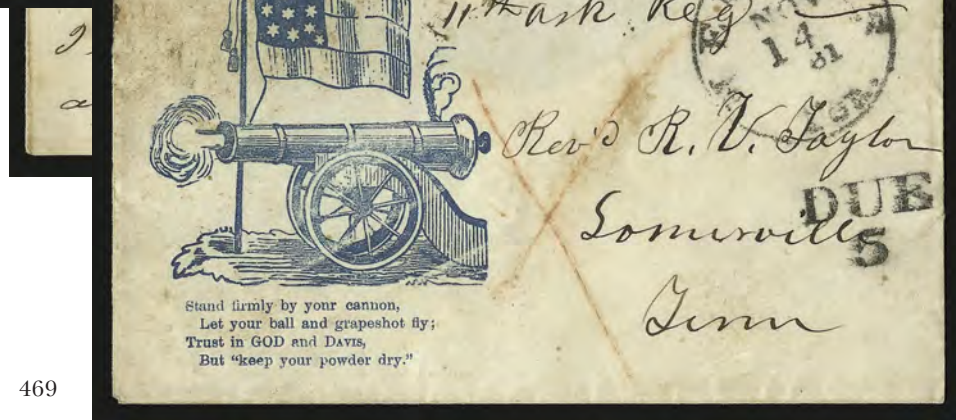 11th Ark Reg
NOV
14
61
Rev'd R. V. Taylor
Somerville
Tenn
DUE
5
Stand firmly by your cannon,
Let your ball and grapeshot fly;
Trust in GOD and DAVIS,
But "keep your powder dry."
469